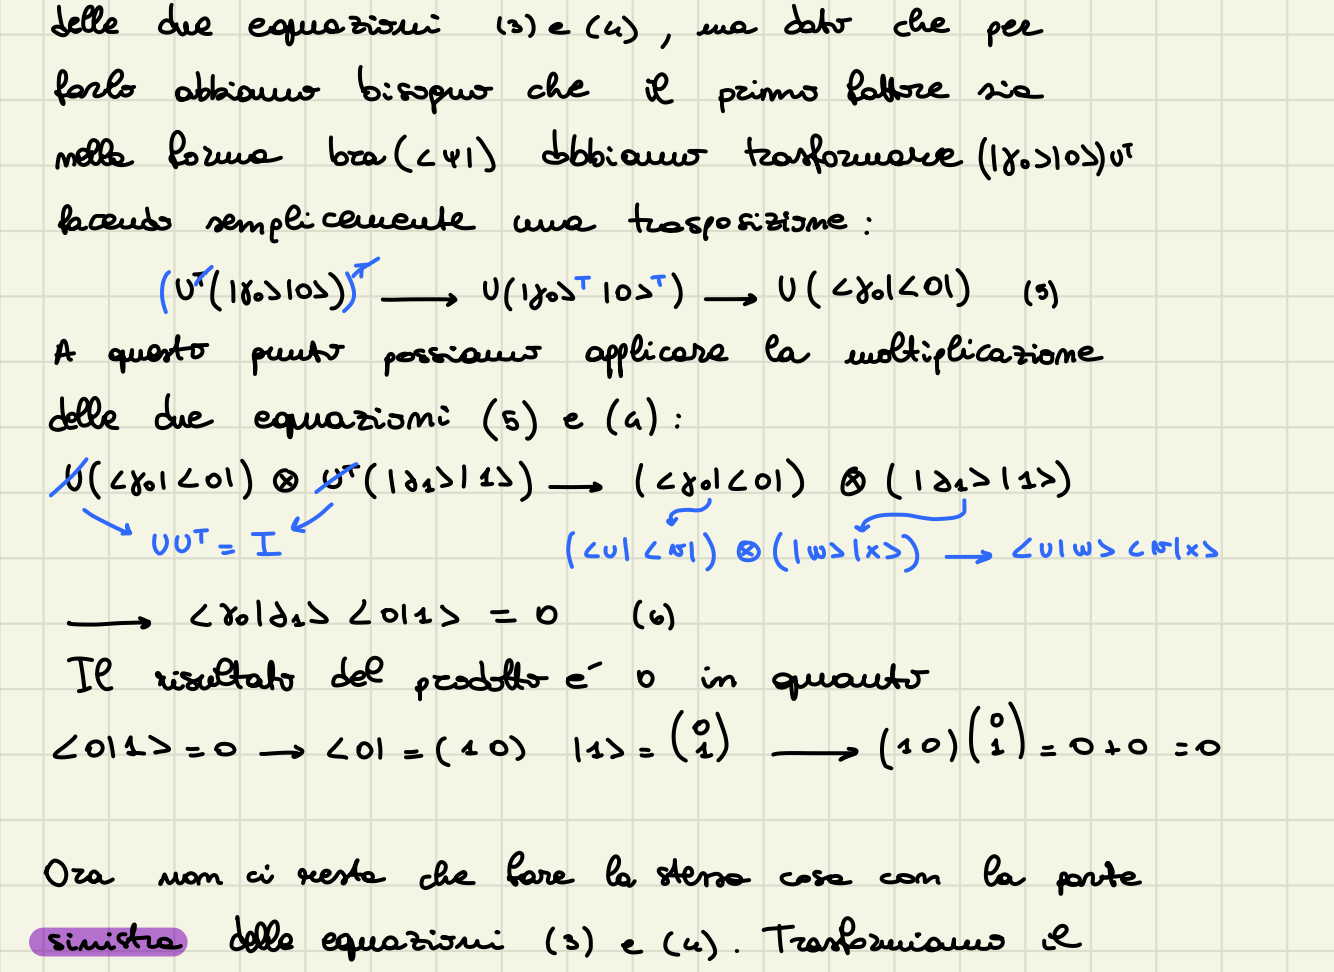 delle due equazioni (3) e (4), ma dato che per
farlo abbiamo bisogno che il primo fattore sia
nella forma bra(<ψ|) dobbiamo trasformare (|γ₀>|0>)Uᵀ
facendo semplicemente una trasposizione:
(Uᵀ(|γ₀>|0>))ᵀ ⟶ U(|γ₀>ᵀ|0>ᵀ) ⟶ U(<γ₀|<0|) (5)
A questo punto possiamo applicare la moltiplicazione
delle due equazioni (5) e (4):
U(<γ₀|<0|) ⊗ Uᵀ(|δ₁>|1>) ⟶ (<γ₀|<0|) ⊗ (|δ₁>|1>)
UUᵀ = I (<u|<v|) ⊗ (|w>|x>) ⟶ <u|w><v|x>
⟶ <γ₀|δ₁><0|1> = 0 (6)
Il risultato del prodotto é 0 in quanto
<0|1> = 0 ⟶ <0| = (1 0) |1> = (0 1) ⟶ (1 0)(0 1) = 0 + 0 = 0
Ora non ci resta che fare la stessa cosa con la parte
sinistra delle equazioni (3) e (4). Trasformiamo il